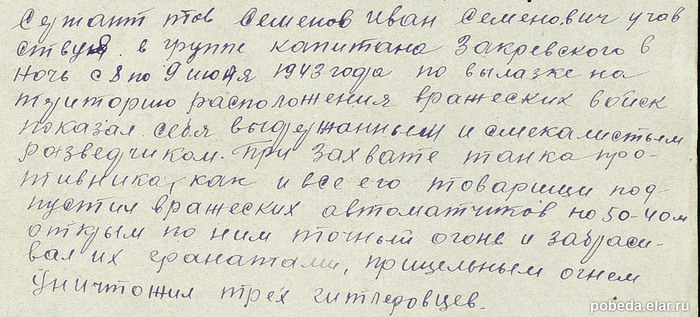 Сержант птов Семенов Иван Семенович учав
ствуя в группе капитана Закревского в
ночь с 8 по 9 июня 1943 года по вылазке на
териториию расположения вражеских войск
показал себя выдержанным и смекалистым
разведчиком. При захвате танка про-
тивника, как и все его товарищи под-
пустил вражеских автоматчиков на 50-40м
открыл по ним точный огонь и забрасы-
вал их гранатами, прицельным огнем
уничтожил трех гитлеровцев.
pobeda.elar.ru